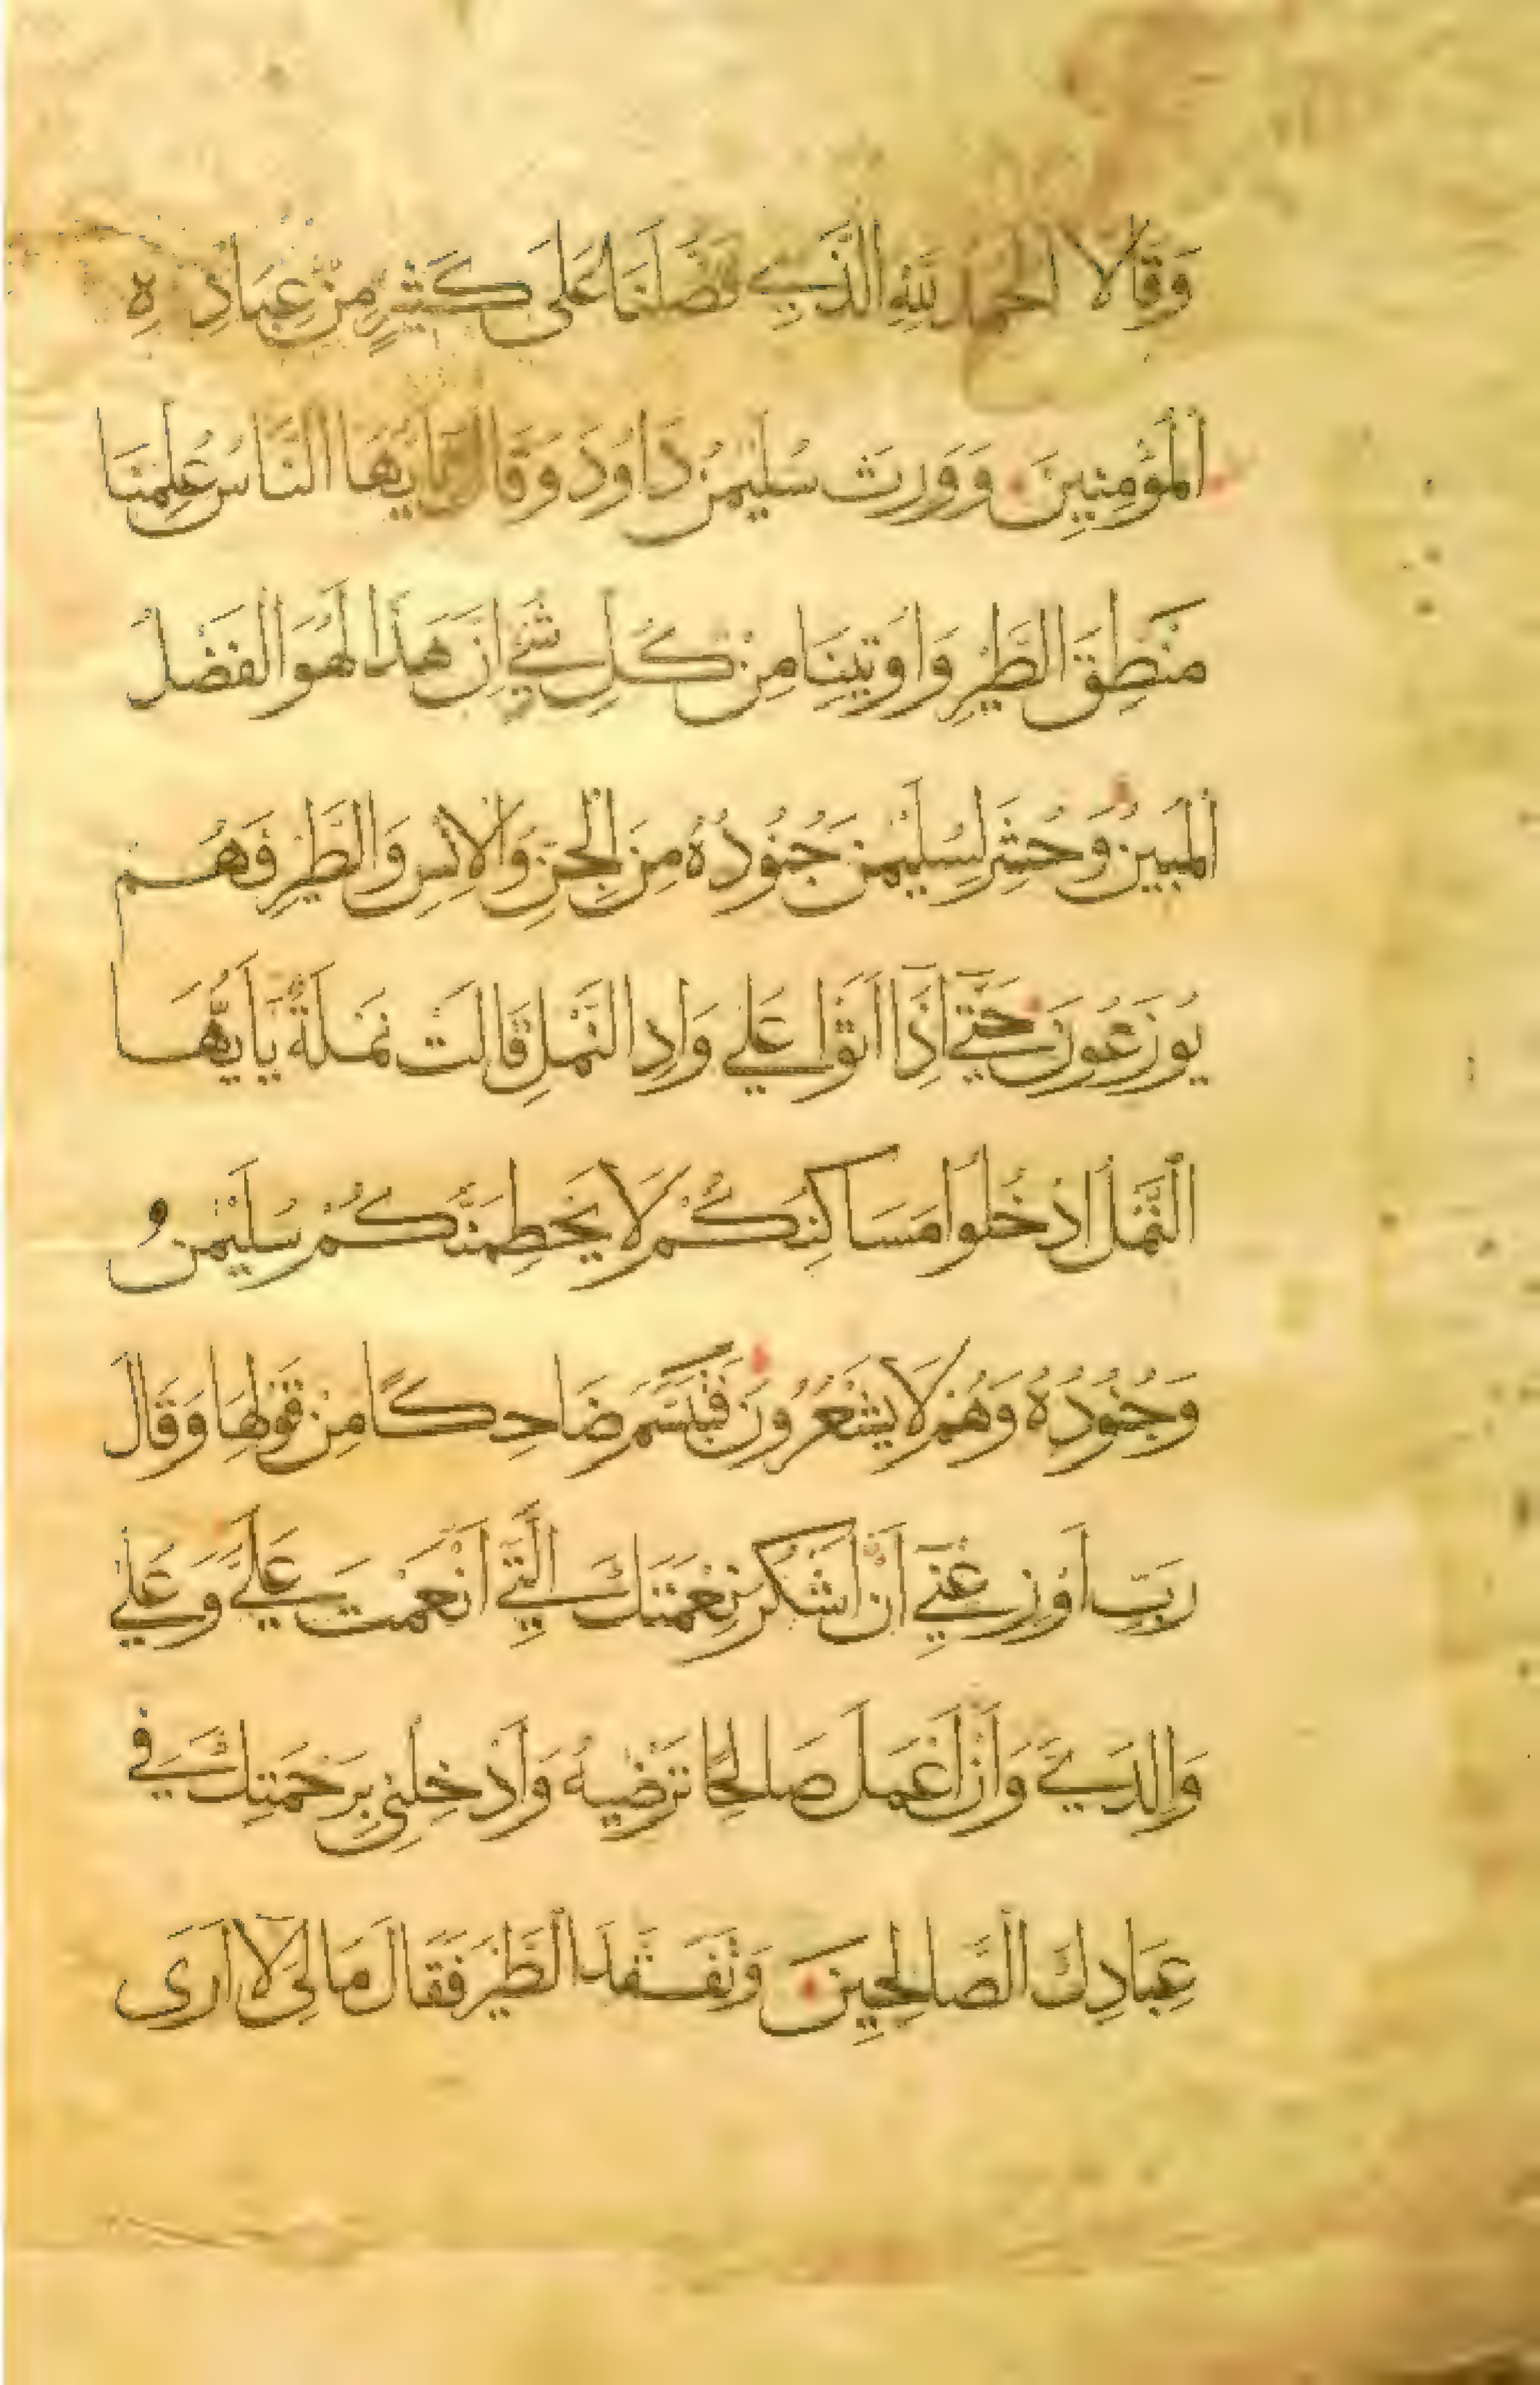 وَقَالَا الْحَمْدُ لِلَّهِ الَّذِي فَضَّلَنَا عَلَى كَثِيرٍ مِنْ عِبَادِهِ
الْمُؤْمِنِينَ وَوَرِثَ سُلَيْمٰنُ دَاوُدَ وَقَالَ يَا يُّهَا النَّاسُ عُلِّمْنَا
مَنْطِقَ الطَّيْرِ وَاُوتِينَا مِنْ كُلِّ شَيْءٍ اِنَّ هَذَا لَهُوَ الْفَضْلُ
الْمُبِينُ وَحُشِرَ لِسُلَيْمٰنَ جُنُودُهُ مِنَ الْجِنِّ وَالْاِنْسِ وَالطَّيْرِ فَهُمْ
يُوزَعُونَ حَتَّى اِذَا اَتَوْا عَلَى وَادِ النَّمْلِ قَالَتْ نَمْلَةٌ يَا اَيُّهَا
النَّمْلُ ادْخُلُوا مَسَاكِنَكُمْ لَا يَحْطِمَنَّكُمْ سُلَيْمٰنُ
وَجُنُودُهُ وَهُمْ لَا يَشْعُرُونَ فَتَبَسَّمَ ضَاحِكًا مِنْ قَوْلِهَا وَقَالَ
رَبِّ اَوْزِعْنِي اَنْ اَشْكُرَ نِعْمَتَكَ الَّتِي اَنْعَمْتَ عَلَيَّ وَعَلَى
وَالِدَيَّ وَاَنْ اَعْمَلَ صَالِحًا تَرْضٰيهُ وَاَدْخِلْنِي بِرَحْمَتِكَ فِي
عِبَادِكَ الصَّالِحِينَ وَتَفَقَّدَ الطَّيْرَ فَقَالَ مَا لِيَ لَا اَرَى